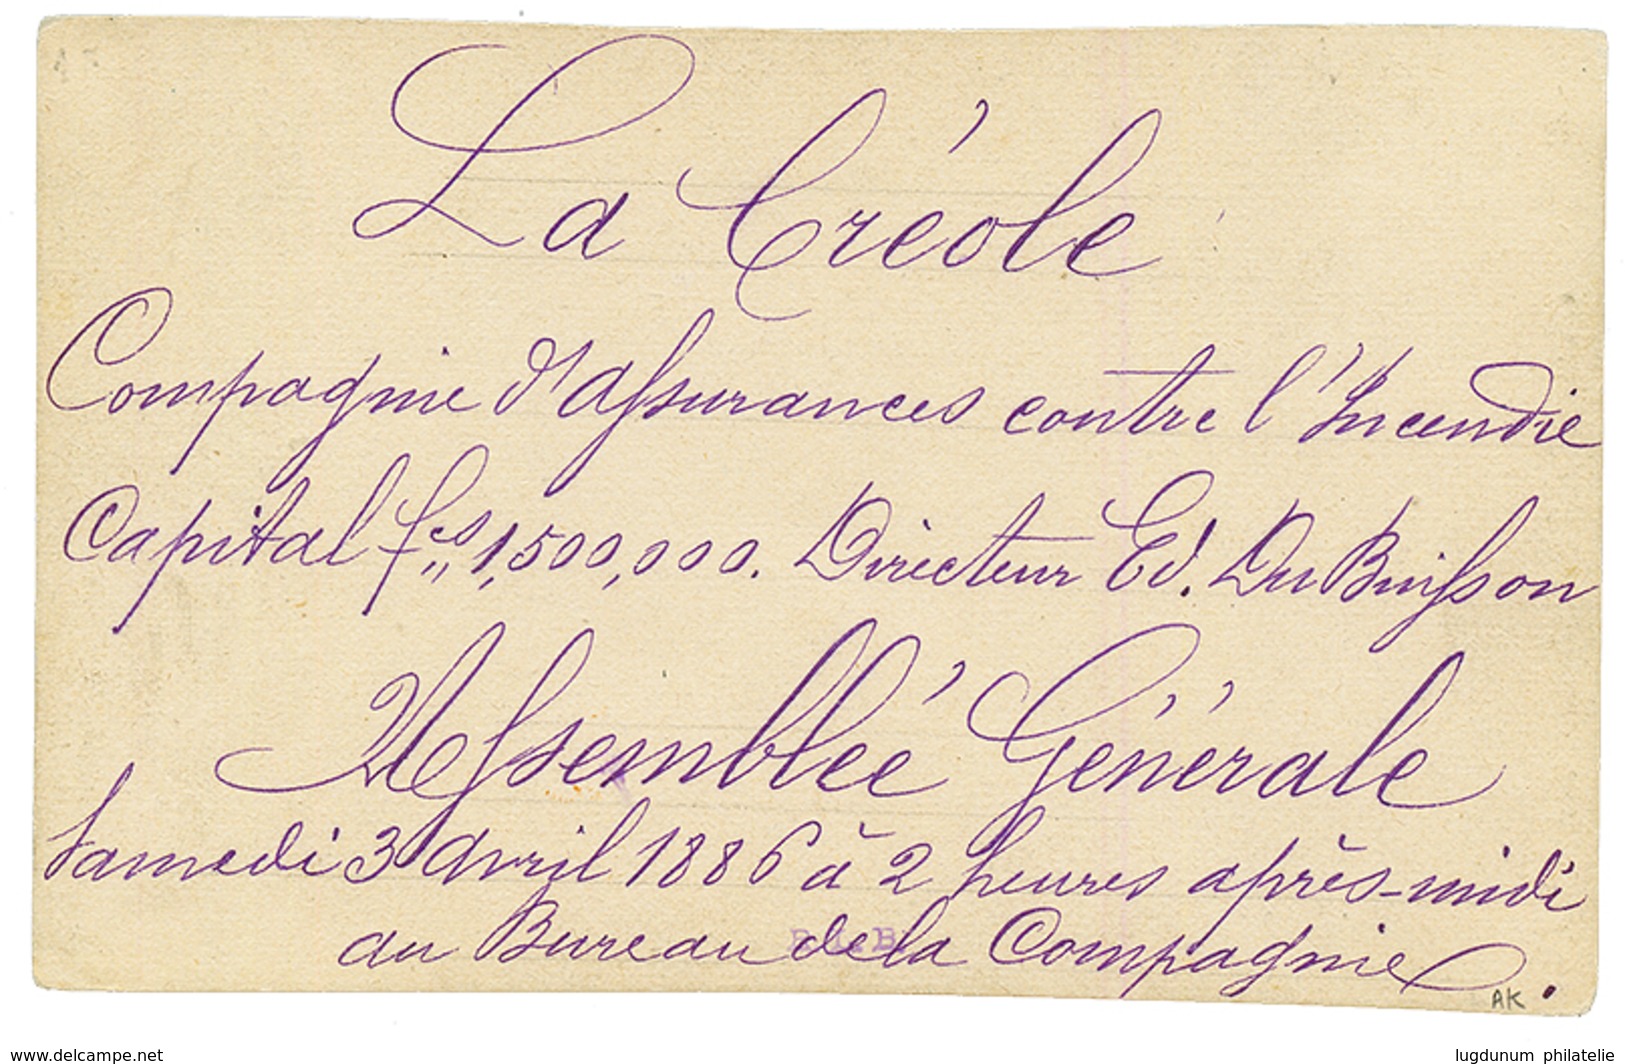 La Créole
Compagnie d'assurances contre l'Incendie
Capital fcs„ 1,500,000. Directeur Ed. Du Buisson
Assemblée Générale
Samedi 3 Avril 1886 à 2 heures après-midi
au Bureau de la Compagnie.
AK
www.delcampe.net
lugdunum philatelie